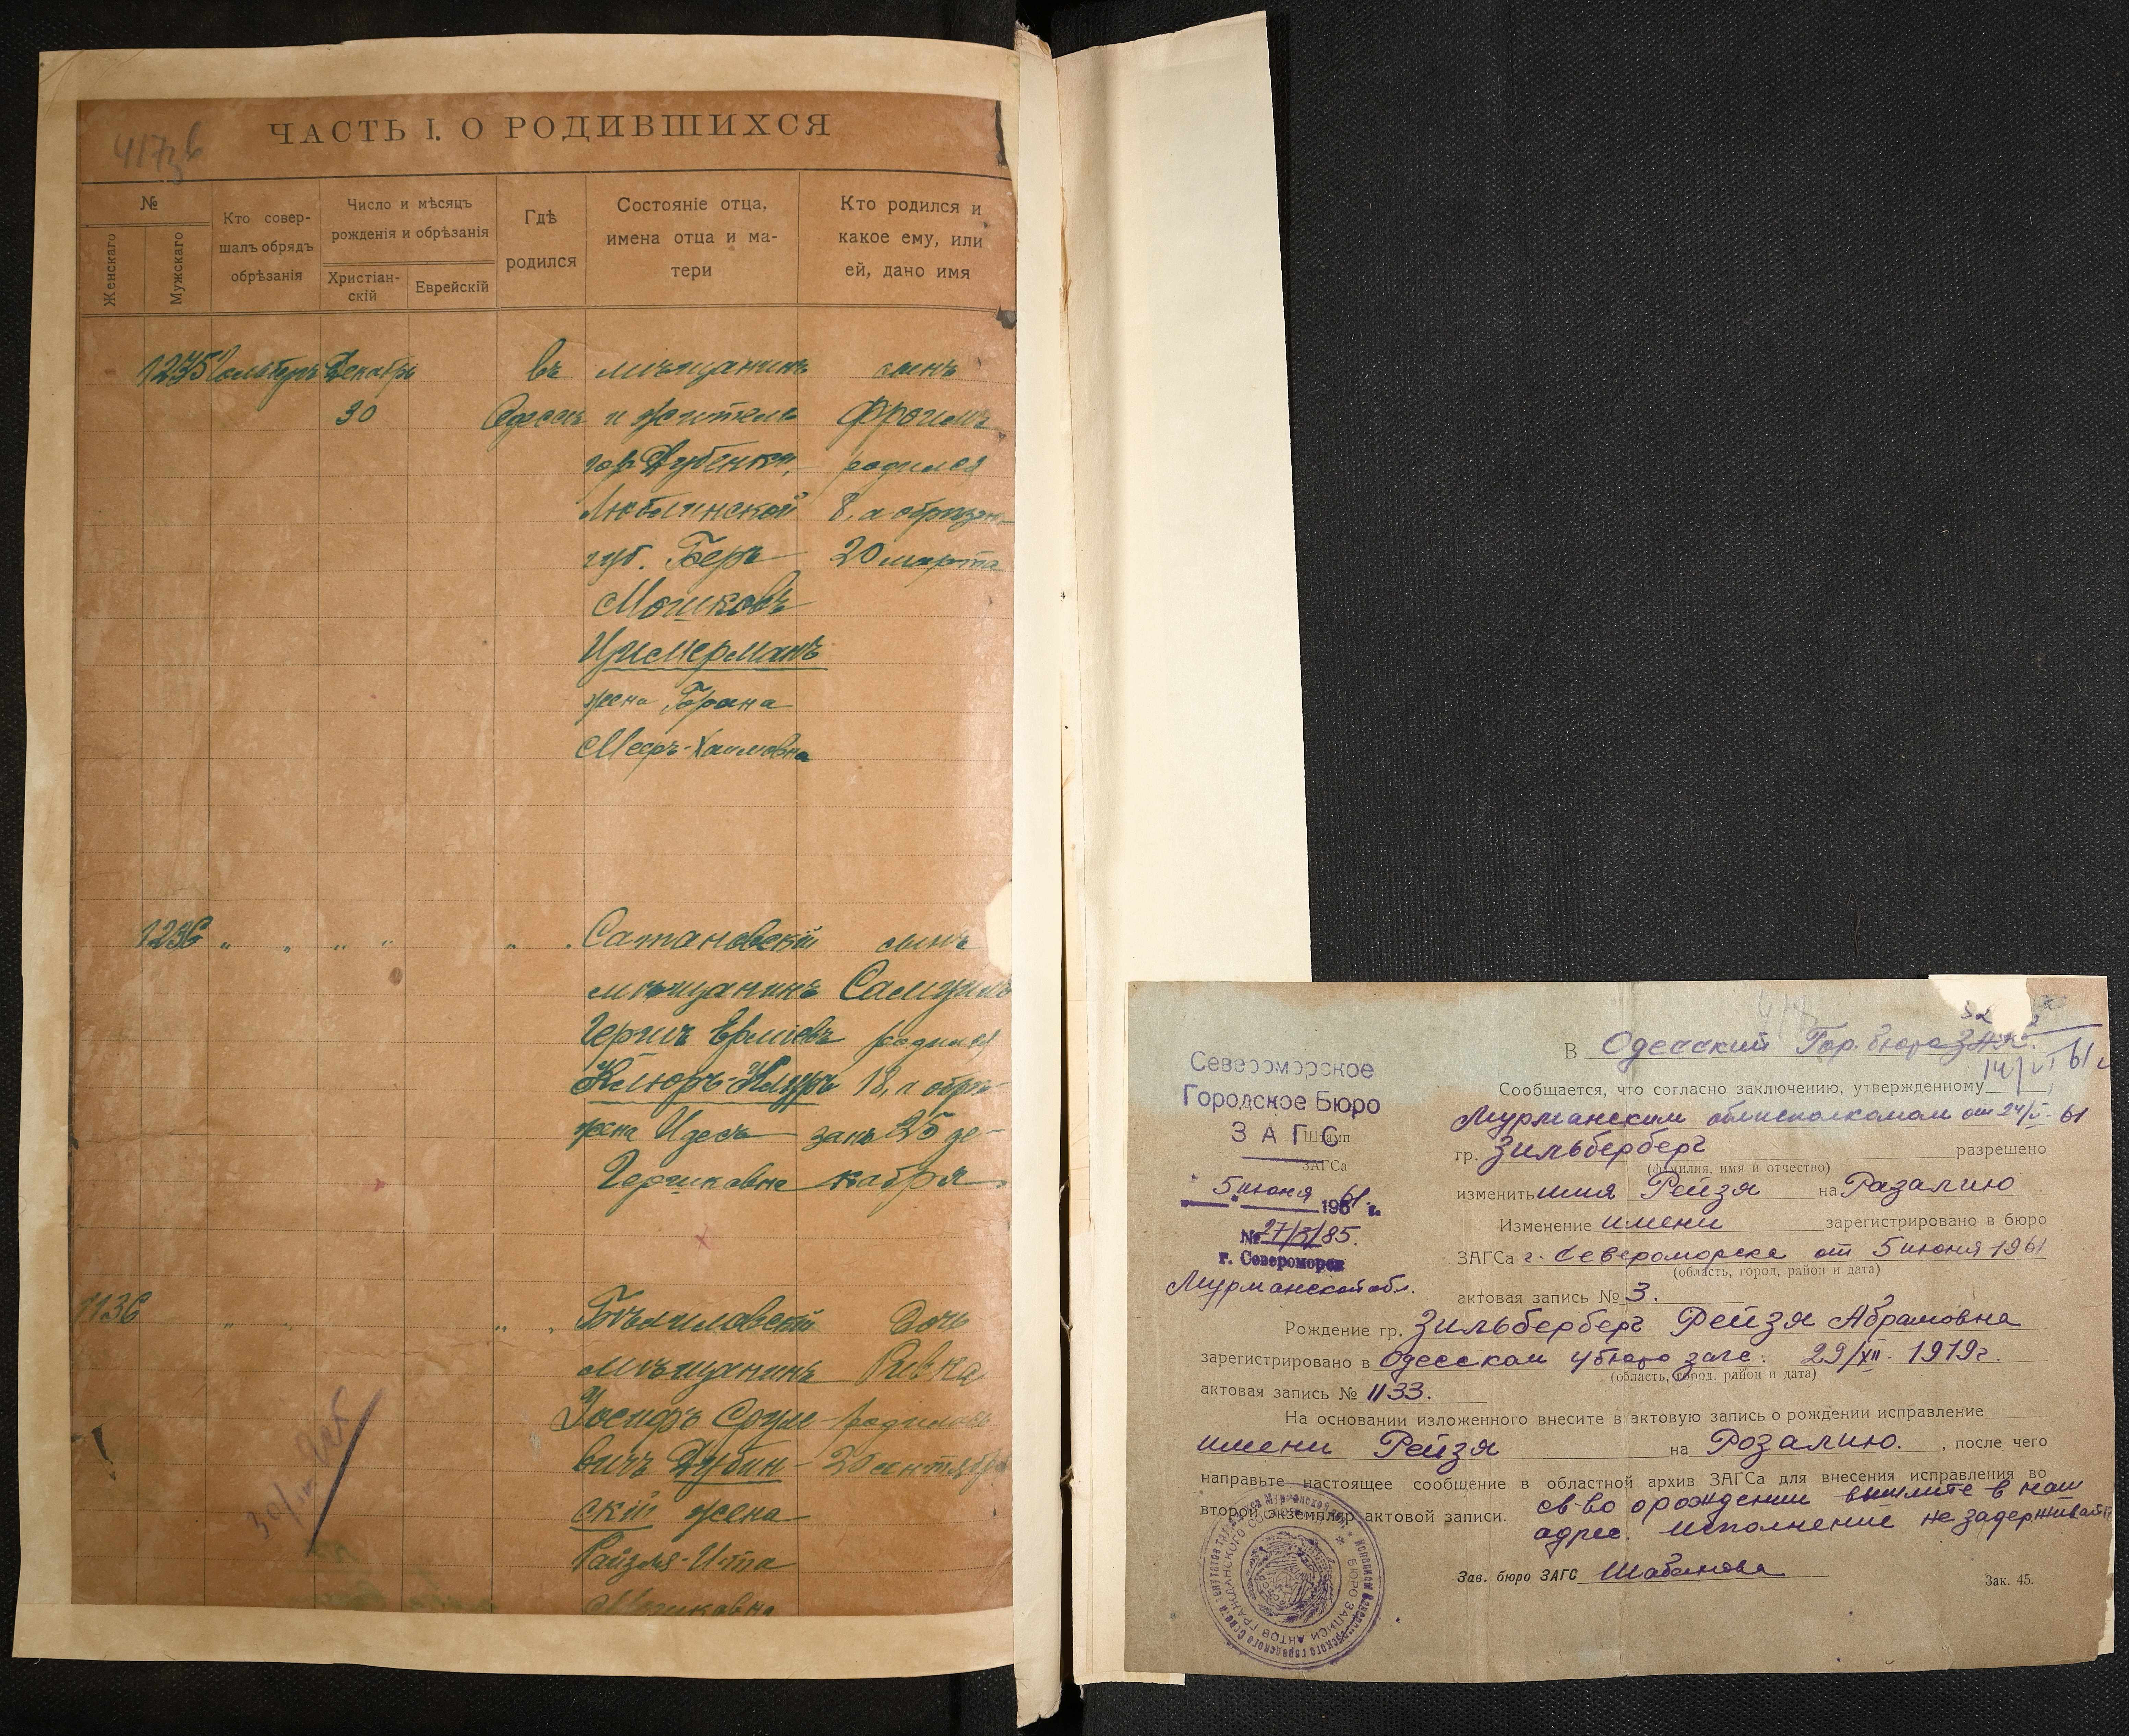 ЧАСТЬ I. О РОДИВШИХСЯ
№
Женскаго
Мужскаго
Кто совер-
шалъ обрядъ
обрѣзанія
Число и мѣсяцъ
рожденія и обрѣзанія
Христіан-
скій
Еврейскій
Гдѣ
родился
Состояніе отца,
имена отца и ма-
тери
Кто родился и
какое ему, или
ей, дано имя
Декабрь въ мѣщанинъ сынъ
30 Одессѣ и житель Фроимъ
гор. Дубенки, родился
Люблинской 8, а обрѣзан
губ. Беръ 20 марта
Мошковъ
Цимерманъ
жена Брана
Мееръ-Хаимовна
1236 „ „ „ „ „ „ Сатановскій сынъ
мѣщанинъ Самуилъ
Гершъ родился
18, а обрѣ-
жена Идесъ занъ 25 де-
Гершковна кабря
1136 „ „ „ „ дочь
мѣщанинъ Ривка
Іосифъ Сруле- родилась
вичъ Дубин- 20 сентября
скій жена
Райзля-Ита
Мошковна
Североморское
Городское Бюро
ЗАГС
Штамп
ЗАГСа
5 июня 1961 г.
г. Североморск
Мурманской обл.
В Одесский Гор. бюро ЗАГС
Сообщается, что согласно заключению, утвержденному
Мурманским облисполкомом от 24/V- 61
гр. Зильберберг разрешено
(фамилия, имя и отчество)
изменить имя Рейзя на Разалию
Изменение имени зарегистрировано в бюро
ЗАГСа г. Североморска от 5 июня 1961
(область, город, район и дата)
актовая запись № 3.
Рождение гр. Зильберберг Рейзя Абрамовна
зарегистрировано в Одесском бюро загс. 29/XII- 1919г.
(область, город, район и дата)
актовая запись № 1133.
На основании изложенного внесите в актовую запись о рождении исправление
имени Рейзя на Розалию. , после чего
направьте настоящее сообщение в областной архив ЗАГСа для внесения исправления во
второй экземпляр актовой записи. св-во о рождении вышлите в наш
адрес. Исполнение не задерживайте
Зав. бюро ЗАГС Шабанова
Зак. 45.